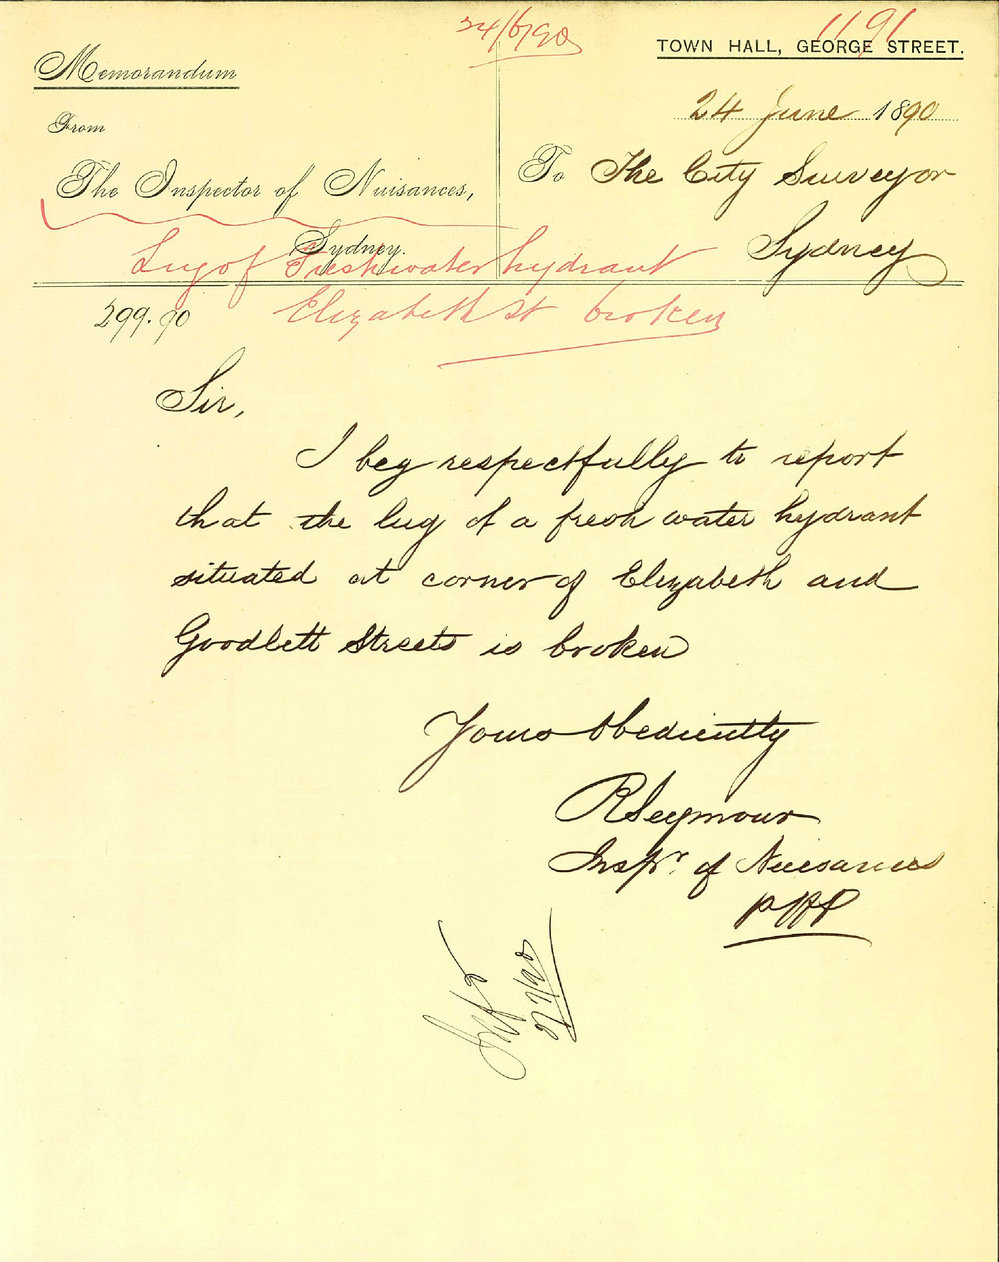 24/6/90
1191
TOWN HALL, GEORGE STREET.
Memorandum
24 June 1890
From
The Inspector of Nuisances,
Sydney.
To The City Surveyor
Sydney
Lug of Freshwater hydrant
Elizabeth St broken
299.90
Sir,
I beg respectfully to report
that the lug of a fresh water hydrant
situated at corner of Elizabeth and
Goodlett Streets is broken
Yours Obediently
R Seymour
Inspr. of Nuisances